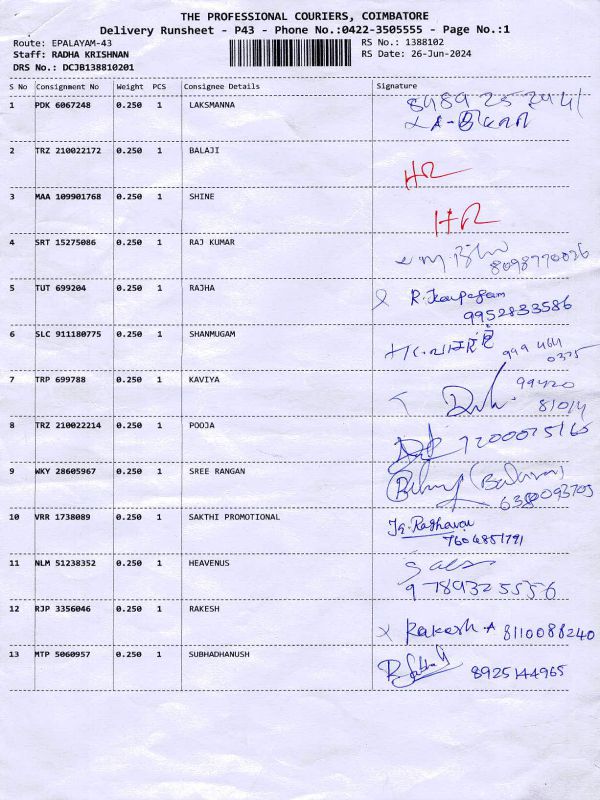 THE PROFESSIONAL COURIERS, COIMBATORE
Delivery Runsheet - P43 - Phone No.:0422-3505555 - Page No.:1
Route: EPALAYAM-43
RS No.: 1388102
Staff: RADHA KRISHNAN
RS Date: 26-Jun-2024
DRS No.: DCJB138810201
S No Consignment No Weight PCS Consignee Details Signature
1 PDK 6067248 0.250 1 LAKSMANNA
2 TRZ 210022172 0.250 1 BALAJI HR
3 MAA 109901768 0.250 1 SHINE HR
4 SRT 15275086 0.250 1 RAJ KUMAR
8098770026
5 TUT 699204 0.250 1 RAJHA R. Karpagam
9952833586
6 SLC 911180775 0.250 1 SHANMUGAM
7 TRP 699788 0.250 1 KAVIYA 99420
81014
8 TRZ 210022214 0.250 1 POOJA 7200075165
9 WKY 28605967 0.250 1 SREE RANGAN
6380093703
10 VRR 1738089 0.250 1 SAKTHI PROMOTIONAL Raghavan
7604851791
11 NLM 51238352 0.250 1 HEAVENUS
9789325556
12 RJP 3356046 0.250 1 RAKESH Rakesh.A 8110088240
13 MTP 5060957 0.250 1 SUBHADHANUSH 8925144965